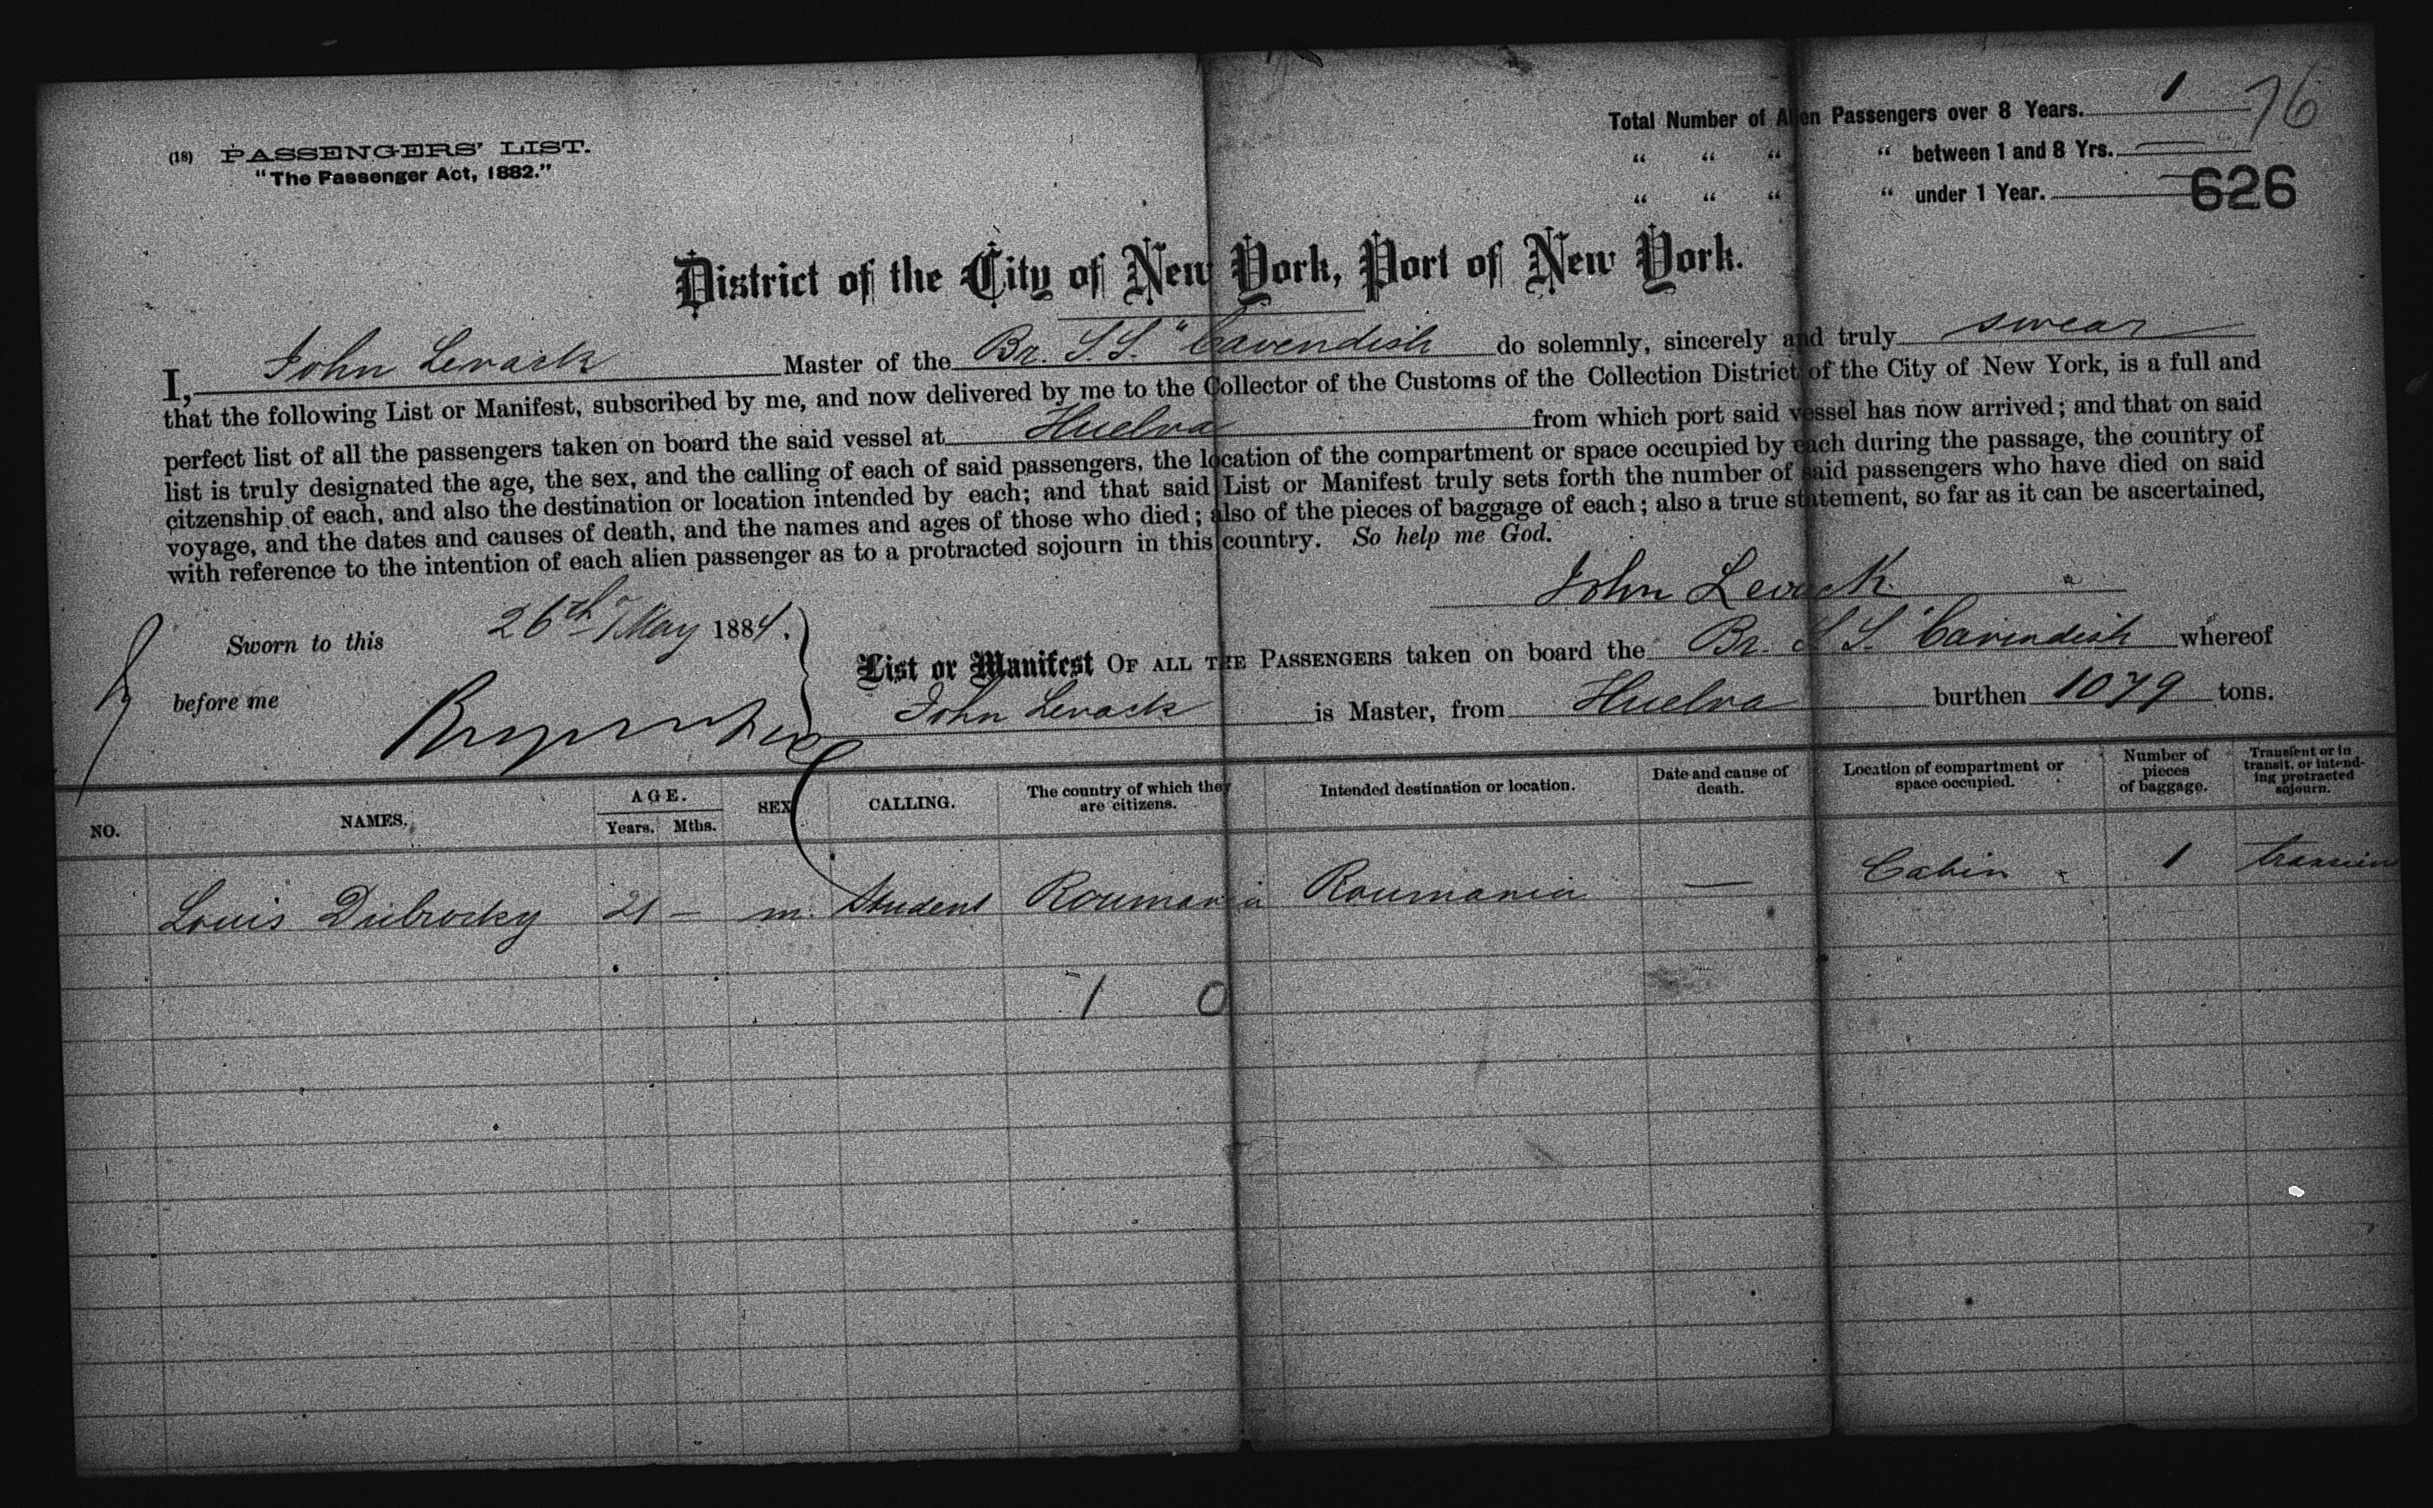 Total Number of Alien Passengers over 8 Years. 1 76
" " " " between 1 and 8 Yrs. —
" " " " under 1 Year. —
626
(18) PASSENGERS' LIST.
"The Passenger Act, 1882."
District of the City of New York, Port of New York.
I, John Levack Master of the Br. S.S. "Cavendish do solemnly, sincerely and truly swear
that the following List or Manifest, subscribed by me, and now delivered by me to the Collector of the Customs of the Collection District of the City of New York, is a full and
perfect list of all the passengers taken on board the said vessel at Huelva from which port said vessel has now arrived; and that on said
list is truly designated the age, the sex, and the calling of each of said passengers, the location of the compartment or space occupied by each during the passage, the country of
citzenship of each, and also the destination or location intended by each; and that said List or Manifest truly sets forth the number of said passengers who have died on said
voyage, and the dates and causes of death, and the names and ages of those who died; also of the pieces of baggage of each; also a true statement, so far as it can be ascertained,
with reference to the intention of each alien passenger as to a protracted sojourn in this country. So help me God.
John Levack
Sworn to this 26th May 1884.
before me
List or Manifest OF ALL THE PASSENGERS taken on board the Br. S.S. "Cavendish whereof
John Levack is Master, from Huelva burthen 1079 tons.
NO. NAMES. AGE. Years. Mths. SEX CALLING. The country of which they are citizens. Intended destination or location. Date and cause of death. Location of compartment or space occupied. Number of pieces of baggage. Transient or in transit, or intending protracted sojourn.
Louis Dubrocky 21 – m. Student Roumania Roumania — Cabin 1 transien
1 0